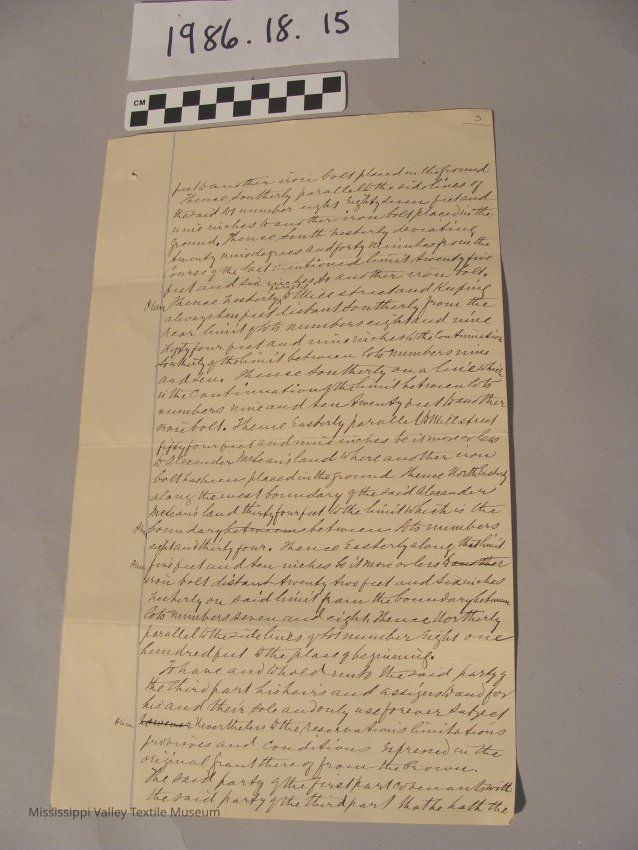 1986.18.15
CM
3
feet to another iron bolt placed in the ground
Thence Southerly parallel to the side lines of
the said lot number eight Eighty seven feet and
nine inches to another iron bolt placed in the
ground. Thence South Westerly deviating
twenty nine degrees and forty minutes from the
Course of the last mentioned limit twenty five
feet and six inches to another iron bolt.
Thence Westerly parallel to Mill street and Keeping
always ten feet distant Southerly from the
rear limit of lots numbers eight and nine
fifty four feet and nine inches to the Continuation
Southerly of the limit between lots numbers nine
and ten. Thence Southerly on a line which
is the Continuation of the limit between lots
numbers nine and ten twenty feet to another
iron bolt. Thence Easterly parallel to Mill street
fifty four feet and nine inches be it more or less
to Alexander McLean's land where another iron
bolt has been placed in the ground Thence North Easterly
along the west boundary of the said Alexander
McLeans land thirty four feet to the limit which is the
boundary between between lots numbers
eight and thirty four. Thence Easterly along that limit
five feet and ten inches be it more or less to another
iron bolt distant twenty two feet and six inches
Westerly on said limit from the boundary between
lots numbers seven and eight. Thence Northerly
parallel to the side lines of lot number eight one
hundred feet to the place of beginning.
To have and to hold unto the said party of
the third part his heirs and assigns to and for
his and their sole and only use forever Subject
however Nevertheless to the reservations limitations
provisoes and Conditions Expressed in the
original grant thereof from the Crown.
The said party of the first part covenants with
the said party of the third part that he hath the
Mississippi Valley Textile Museum